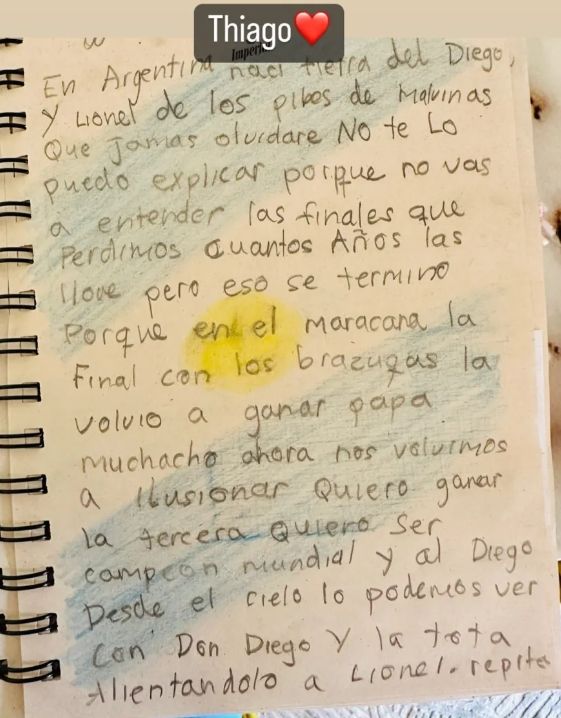 Thiago❤️
En Argentina naci tierra del Diego,
y Lionel de los pibes de Malvinas
Que Jamas olvidare NO te Lo
puedo explicar porque no vas
a entender las finales que
Perdimos cuantos Años las
llore pero eso se termino
Porque en el maracana la
Final con los brazugas la
volvio a ganar papa
muchacho ahora nos volvimos
a ilusionar Quiero ganar
la tercera Quiero ser
campeon mundial y al Diego
Desde el cielo lo podemos ver
con Don Diego Y la tota
Alientandolo a Lionel. repite